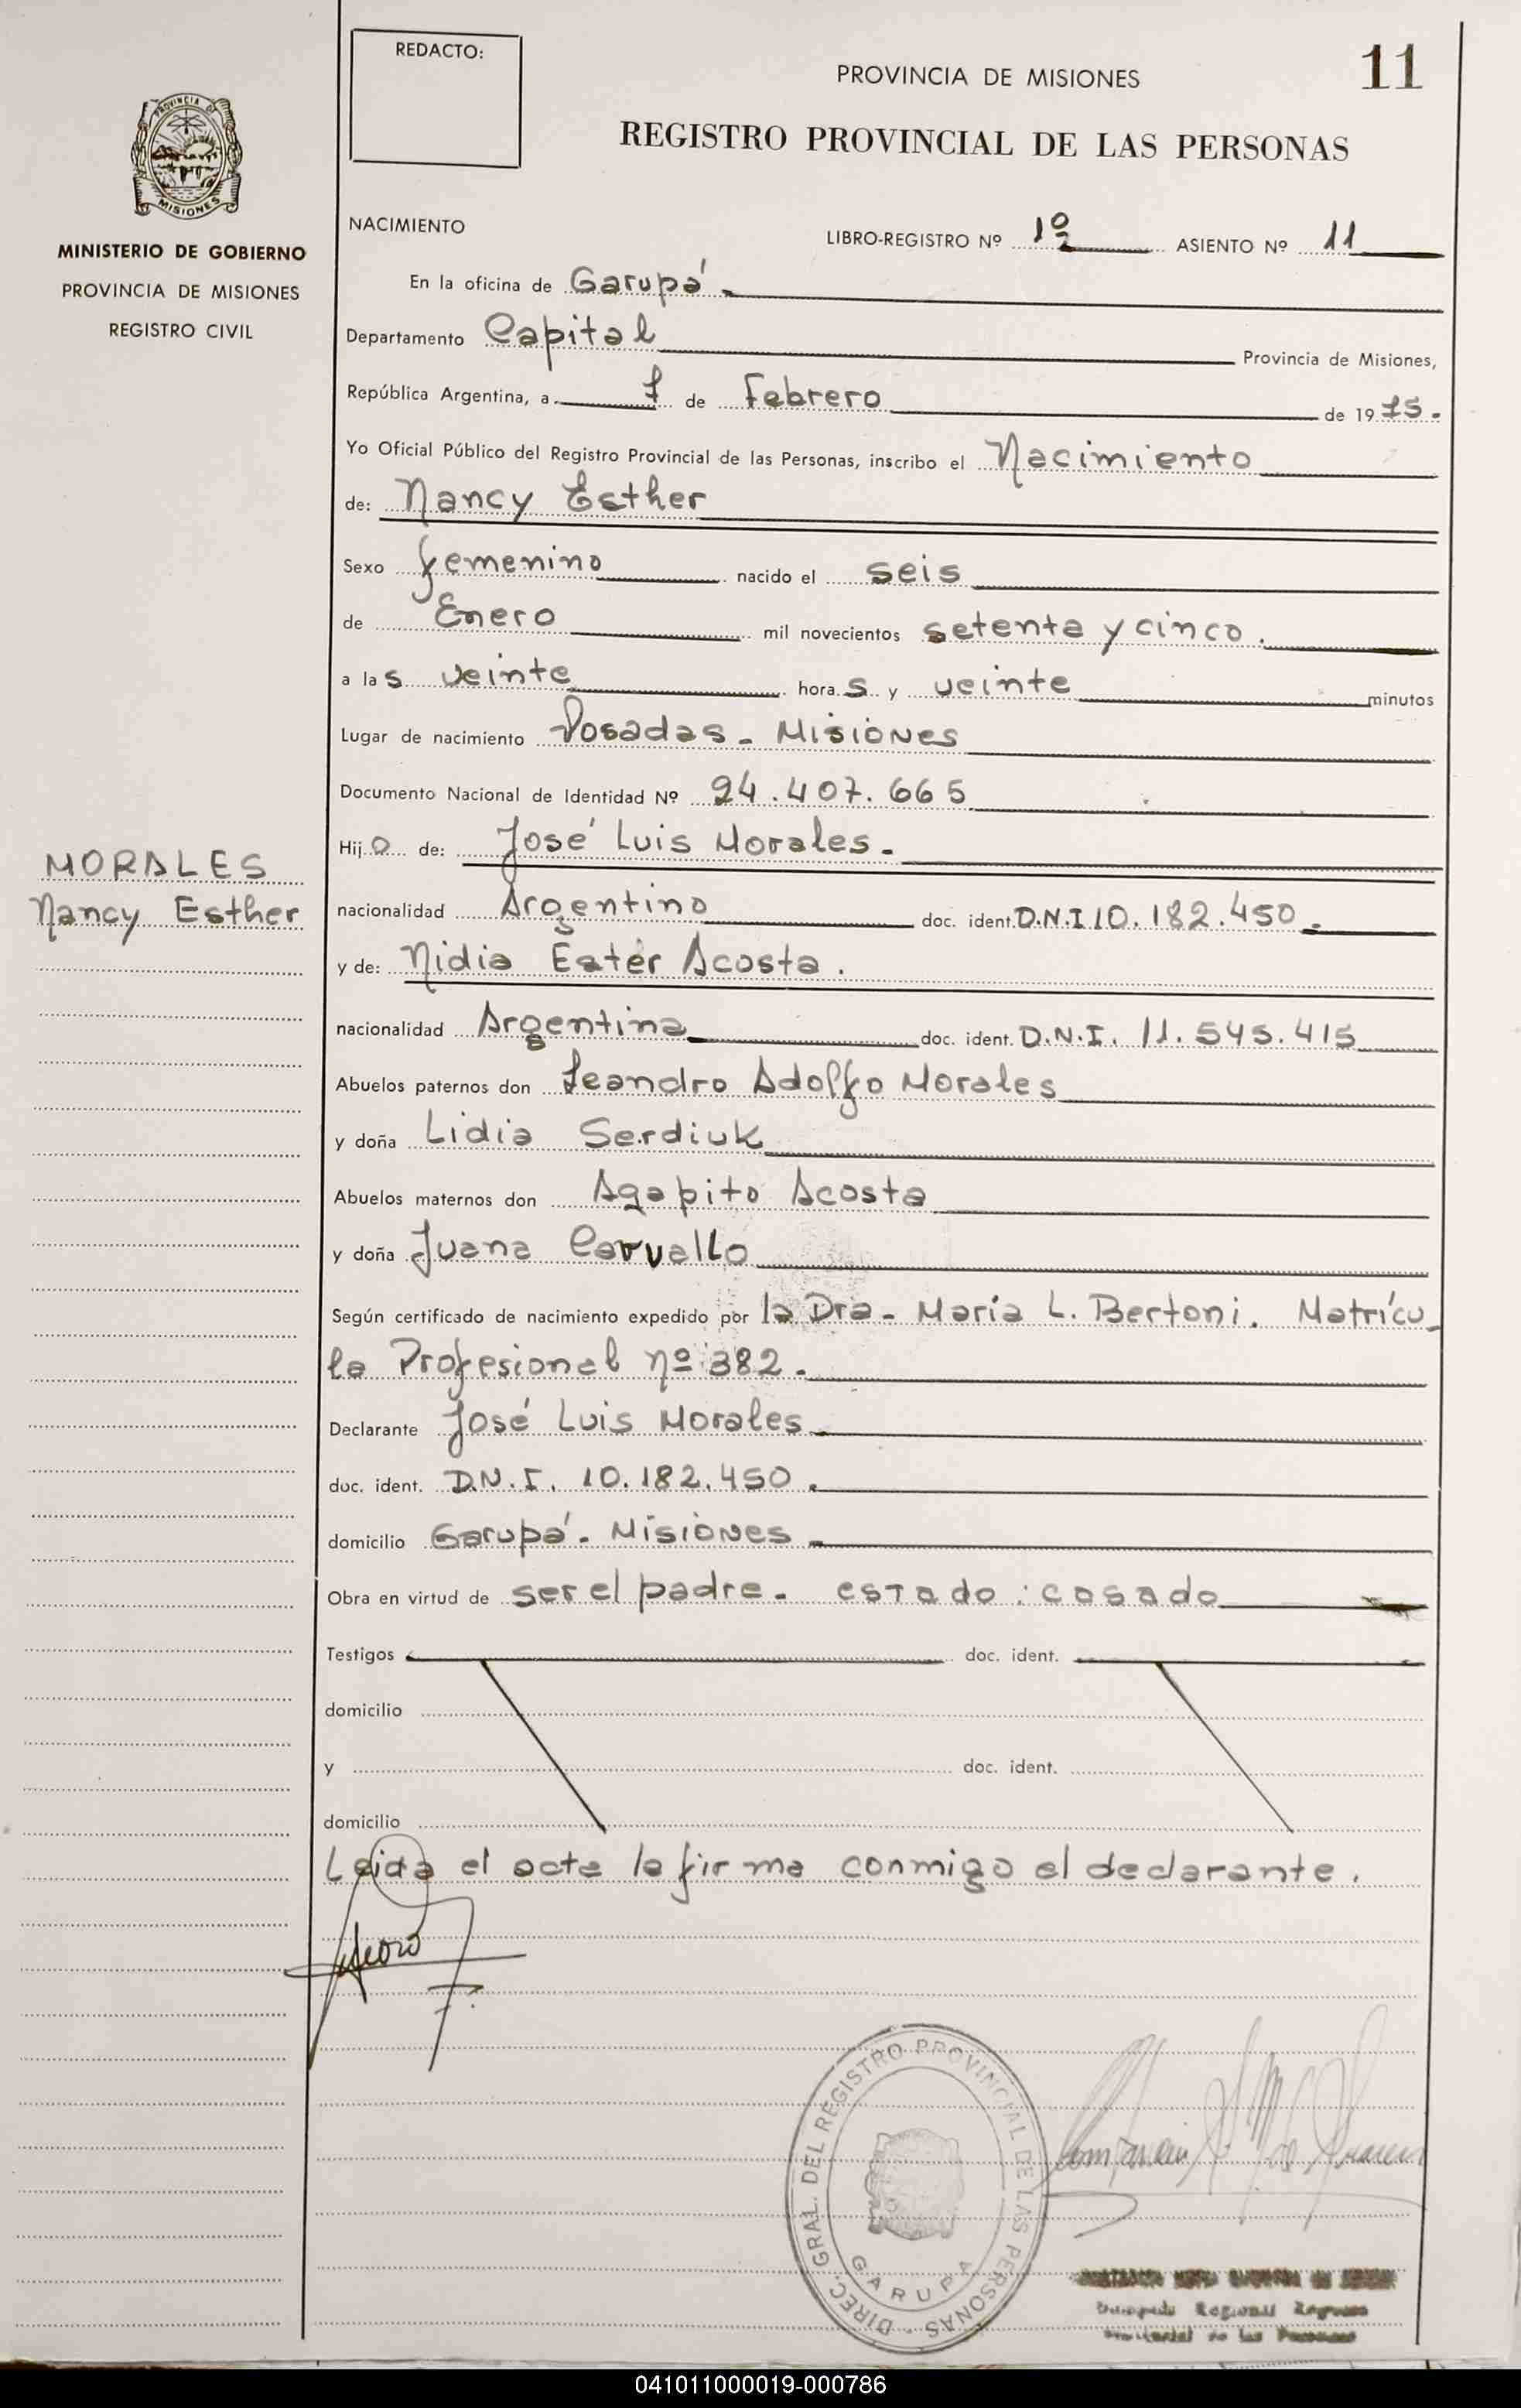 REDACTO:
PROVINCIA DE MISIONES
11
REGISTRO PROVINCIAL DE LAS PERSONAS
PROVINCIA DE
MISIONES
MINISTERIO DE GOBIERNO
PROVINCIA DE MISIONES
REGISTRO CIVIL
NACIMIENTO
LIBRO-REGISTRO Nº 1º ASIENTO Nº 11
En la oficina de Garupá
Departamento Capital Provincia de Misiones,
República Argentina, a 7 de Febrero de 1975.
Yo Oficial Público del Registro Provincial de las Personas, inscribo el Nacimiento
de: Nancy Esther
Sexo femenino nacido el seis
de Enero mil novecientos setenta y cinco.
a las veinte horas y veinte minutos
Lugar de nacimiento Posadas - Misiones
Documento Nacional de Identidad Nº 24.407.665
Hija de: José Luis Morales.
MORALES
Nancy Esther
nacionalidad Argentino doc. ident. D.N.I 10.182.450.
y de: Nidia Ester Acosta.
nacionalidad Argentina doc. ident. D.N.I. 11.545.415
Abuelos paternos don Leandro Adolfo Morales
y doña Lidia Serdiuk
Abuelos maternos don Agapito Acosta
y doña Juana Carvallo
Según certificado de nacimiento expedido por la Dra- María L. Bertoni. Matrícu-
la Profesional nº 382.
Declarante José Luis Morales
doc. ident. D.N.I. 10.182.450.
domicilio Garupá - Misiones
Obra en virtud de ser el padre - estado: casado
Testigos doc. ident.
domicilio
y doc. ident.
domicilio
Leida el acta la firma conmigo el declarante.
DIREC. GRAL. DEL REGISTRO PROVINCIAL DE LAS PERSONAS
GARUPA
041011000019-000786